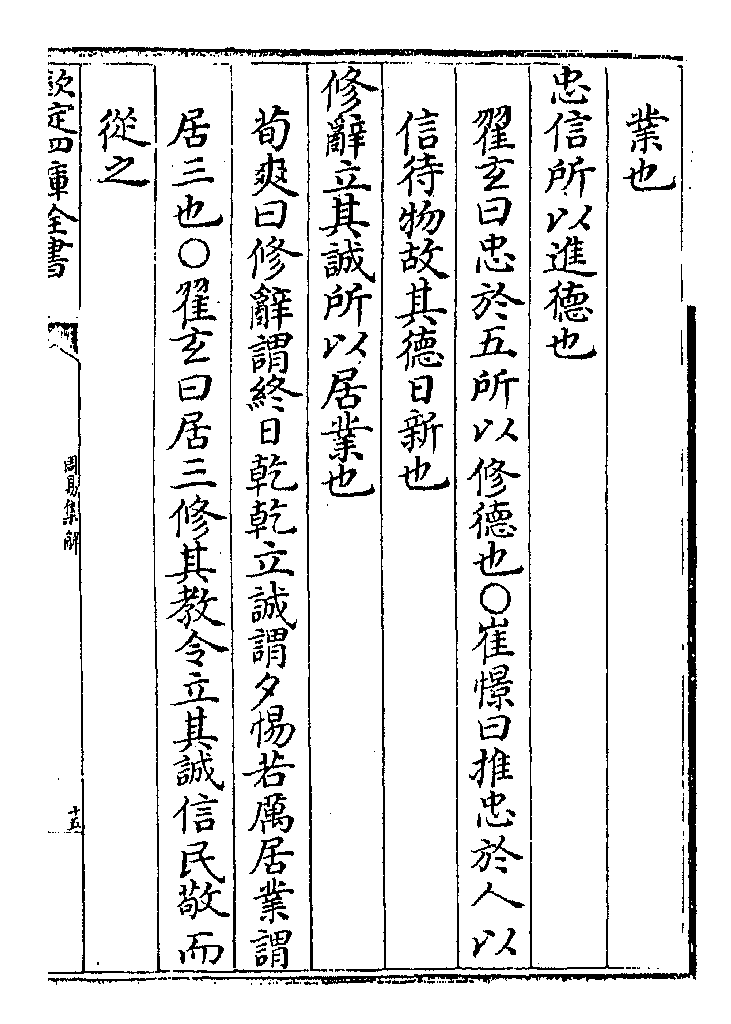 業也
忠信所以進德也
翟玄曰忠於五所以修德也○崔憬曰推忠於人以
信待物故其德日新也
修辭立其誠所以居業也
荀爽曰修辭謂終日乾乾立誠謂夕惕若厲居業謂
居三也○翟玄曰居三修其教令立其誠信民敬而
從之
欽定四庫全書
周易集解
十五